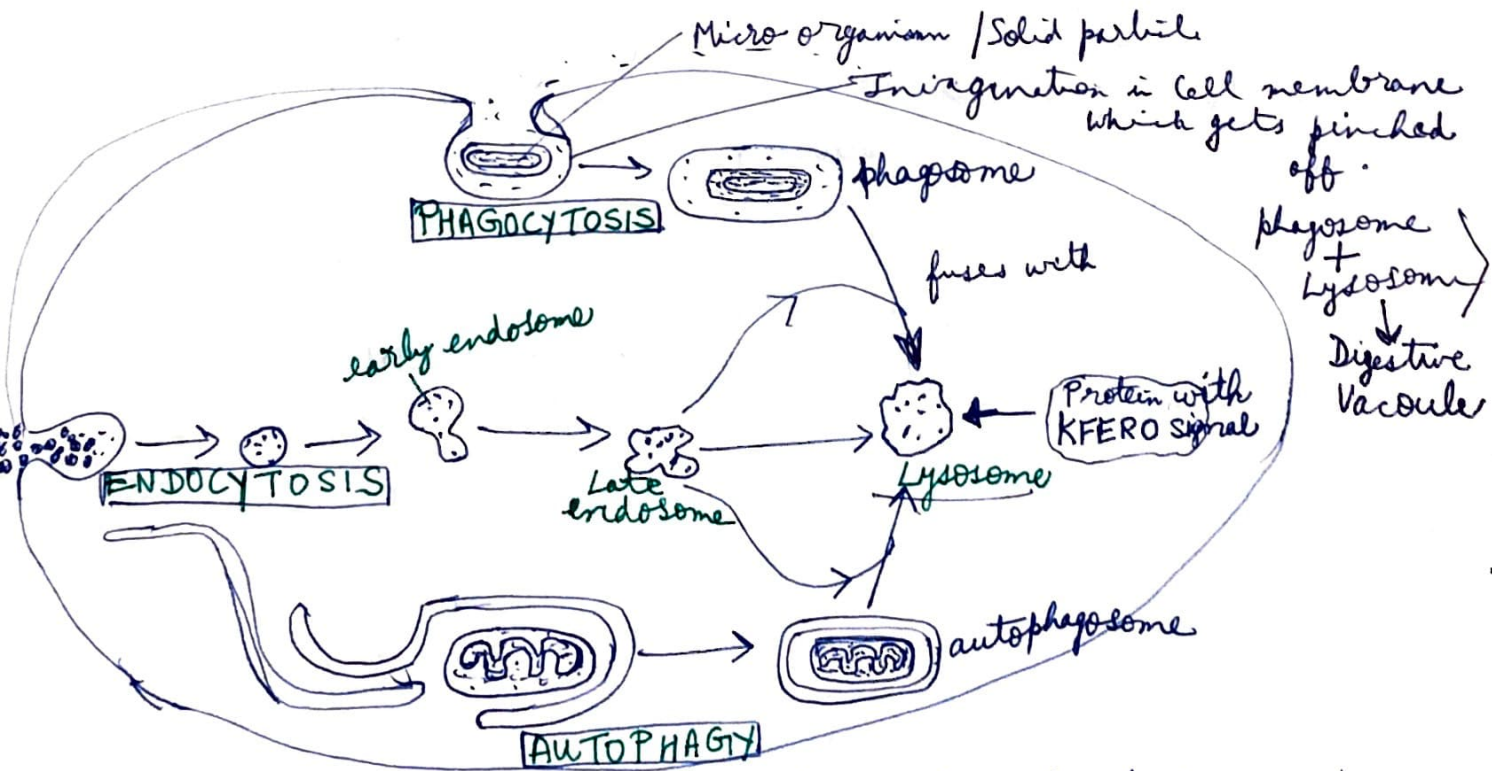 Micro organism / Solid particle
Invagination in Cell membrane
which gets pinched
off.
PHAGOCYTOSIS
phagosome
phagosome
+
Lysosome
Digestive
Vacoule
fuses with
early endosome
ENDOCYTOSIS
Late
endosome
Lysosome
Protein with
KFERO signal
autophagosome
AUTOPHAGY